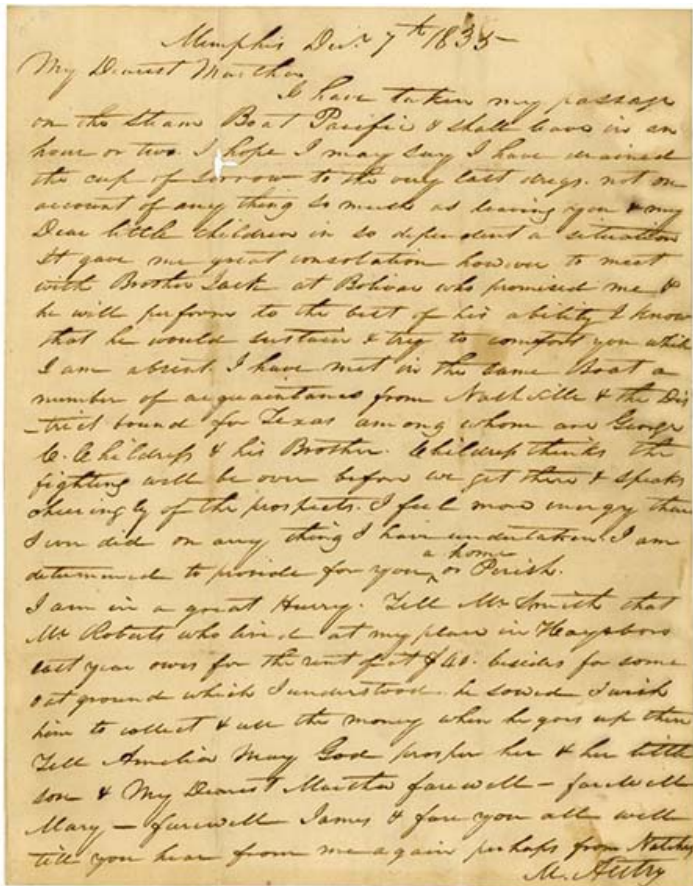 Memphis Decr. 7th 1835
My Dearest Martha
I have taken my passage
on the Steam Boat Pacific & shall leave in an
hour or two. I hope I may say I have drained
the cup of sorrow to the very last dregs. not on
account of any thing so much as leaving you & my
Dear little children in so dependent a situation
It gave me great consolation however to meet
with Brother Jack at Bolivar who promised me &
he will perform to the best of his ability I know
that he would sustain & try to comfort you while
I am absent. I have met in the same Boat a
number of acquaintances from Nashville & the Dis
-trict bound for Texas among whom are George
C. Childress & his Brother. Childress thinks the
fighting will be over before we get there & speaks
cheeringly of the prospects. I feel more energy than
I ever did on any thing I have undertaken. I am
determined to provide for you a home or Perish.
I am in a great Hurry. Tell Mr Smith that
Mr Roberts who lived at my place in Haysboro
last year owes for the rent of it $40. besides for some
oat ground which I understood he sowed I wish
him to collect & use the money when he goes up there
Tell Amelia May God prosper her & her little
son & My Dearest Martha farewell - farewell
Mary - farewell James & fare you all well
till you hear from me again perhaps from Natchez
M. Autry